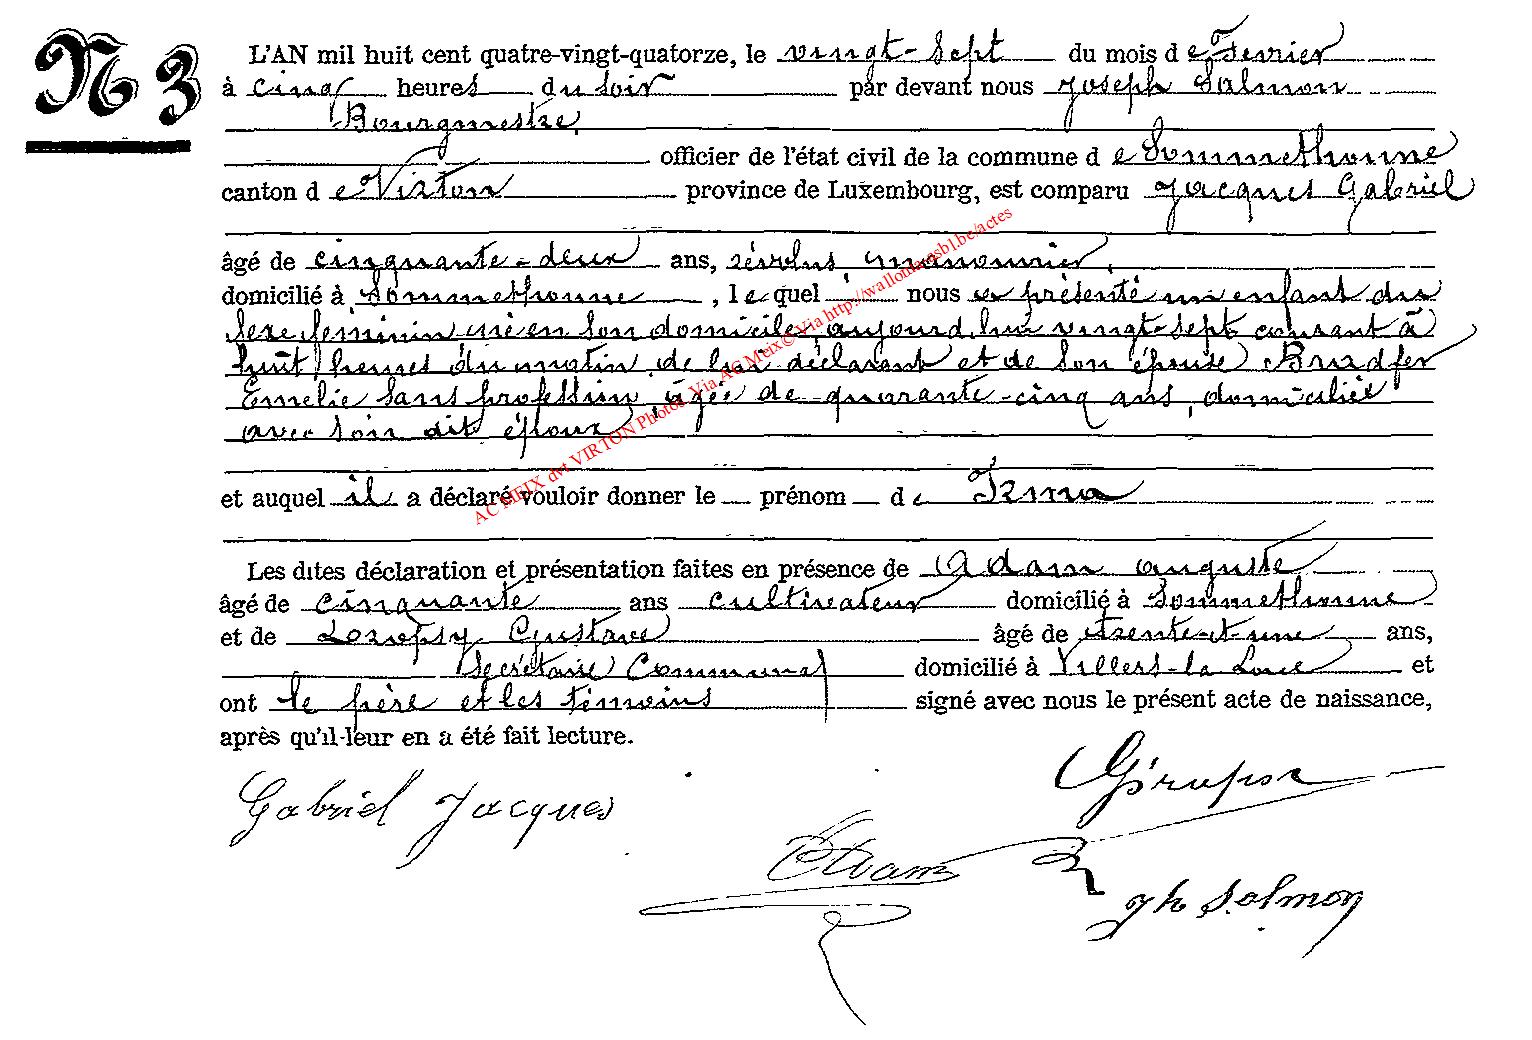 N 3
L'AN mil huit cent quatre-vingt-quatorze, le vingt-sept du mois de Fevrier
à cinq heures du soir par devant nous Joseph Salmon
Bourgmestre,
officier de l'état civil de la commune de Sommethonne
canton de Virton province de Luxembourg, est comparu Jacques Gabriel
âgé de cinquante-deux ans, révolus, manouvrier,
domicilié à Sommethonne, lequel nous a présenté un enfant du
sexe féminin né en son domicile, aujourd'hui vingt-sept courant à
huit heures du matin, de lui déclarant et de son épouse
Emelie sans profession, âgée de quarante-cinq ans, domiciliée
avec son dit époux
et auquel il a déclaré vouloir donner le prénom de Irma
Les dites déclaration et présentation faites en présence de Adam auguste
âgé de cinquante ans cultivateur domicilié à Sommethonne
et de Gustave âgé de trente-et-une ans,
Secrétaire Communal domicilié à Villers-la Loue et
ont le père et les témoins signé avec nous le présent acte de naissance,
après qu'il leur en a été fait lecture.
Gabriel Jacques
Adam
Jh Salmon
AC MEIX dvt VIRTON Photos Via AC Meix© Via http://walloniaasbl.be/actes